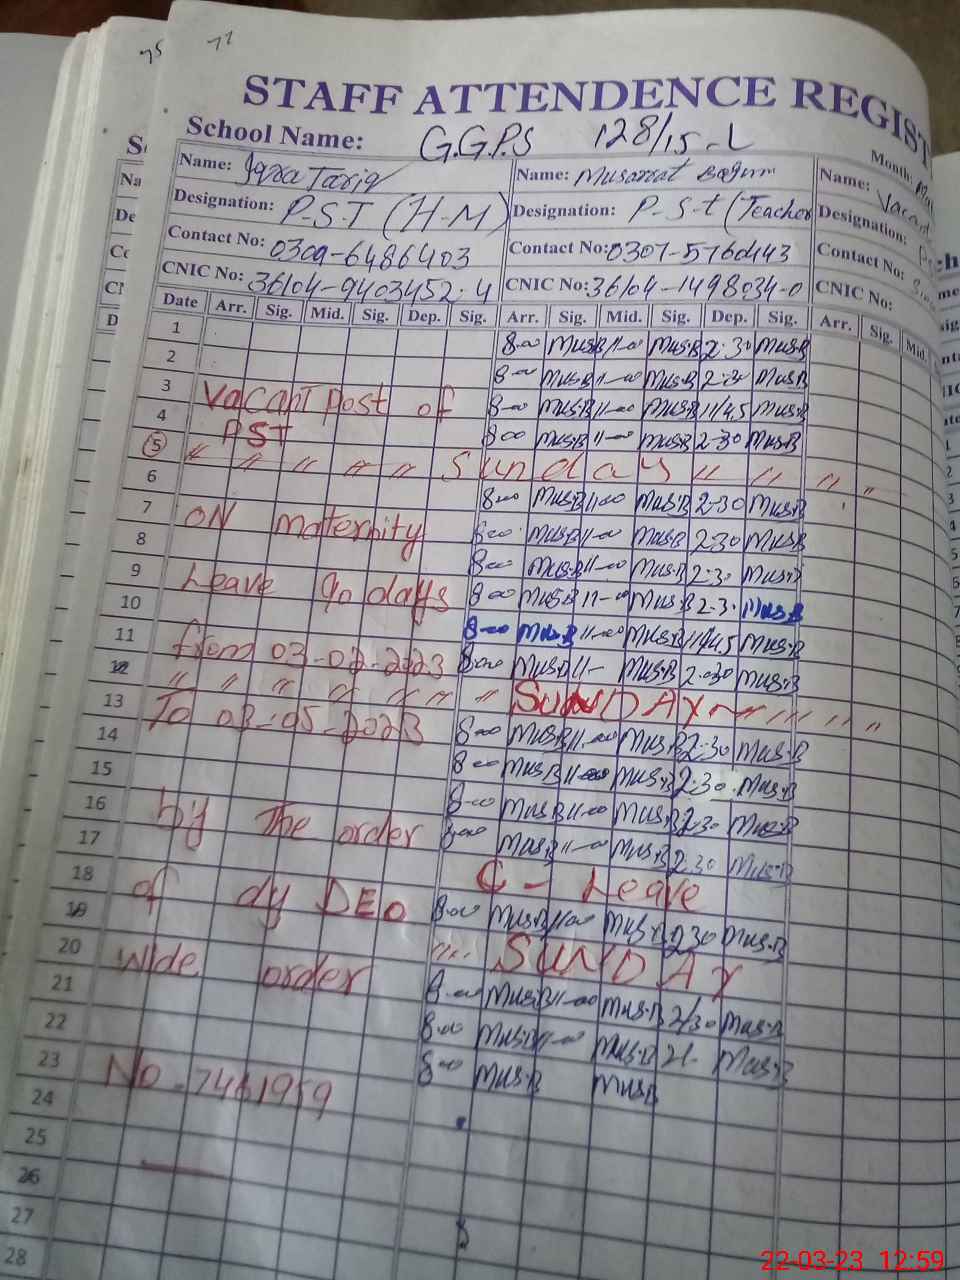 77
75
STAFF ATTENDENCE REGIST
School Name: G.G.P.S 128/15-L
Month:
Name: Iqra Tariq Name: Musarrat Begum Name: Vacant
Designation: P-S-T (H-M) Designation: P-S-t (Teacher Designation:
Contact No: 0309-6486403 Contact No: 0307-5760443 Contact No:
CNIC No: 36104-9403452-4 CNIC No: 36104-1498034-0 CNIC No:
Date Arr. Sig. Mid. Sig. Dep. Sig. Arr. Sig. Mid. Sig. Dep. Sig. Arr. Sig. Mid.
1 8-00 Mus.B 11-00 Mus.B 2-30 Mus.B
2 8-00 Mus.B 11-00 Mus.B 2-30 Mus.B
3 Vacant post of 8-00 Mus.B 11-00 Mus.B 11/45 Mus.B
4 PST 8-00 Mus.B 11-00 Mus.B 2-30 Mus.B
5 " " " " " Sunday " " " "
6 8-00 Mus.B 11-00 Mus.B 2-30 Mus.B
7 ON maternity 8-00 Mus.B 11-00 Mus.B 2-30 Mus.B
8 8-00 Mus.B 11-00 Mus.B 2-30 Mus.B
9 Leave 90 days 8-00 Mus.B 11-00 Mus.B 2-3. Mus.B
10 8-00 Mus.B 11-00 Mus.B 11/45 Mus.B
11 from 03-02-2023 8-00 Mus.B 11- Mus.B 2-30 Mus.B
12 " " " " " " " SUNDAY " " " " "
13 To 03-05-2023 8-00 Mus.B 11-00 Mus.B 2-30 Mus.B
14 8-00 Mus.B 11-00 Mus.B 2-30 Mus.B
15 8-00 Mus.B 11-00 Mus.B 2-30 Mus.B
16 by The order 8-00 Mus.B 11-00 Mus.B 2-30 Mus.B
17 C - Leave
18 of dy DEO 8-00 Mus.B 11-00 Mus.B 2-30 Mus.B
19 "" SUNDAY
20 Wide order 8-00 Mus.B 11-00 Mus.B 2/30 Mus.B
21 8-00 Mus.B 11-00 Mus.B 2- Mus.B
22 8-00 Mus.B Mus.B
23 No-7461959
24
25
26
27
28
22-03-23 12:59